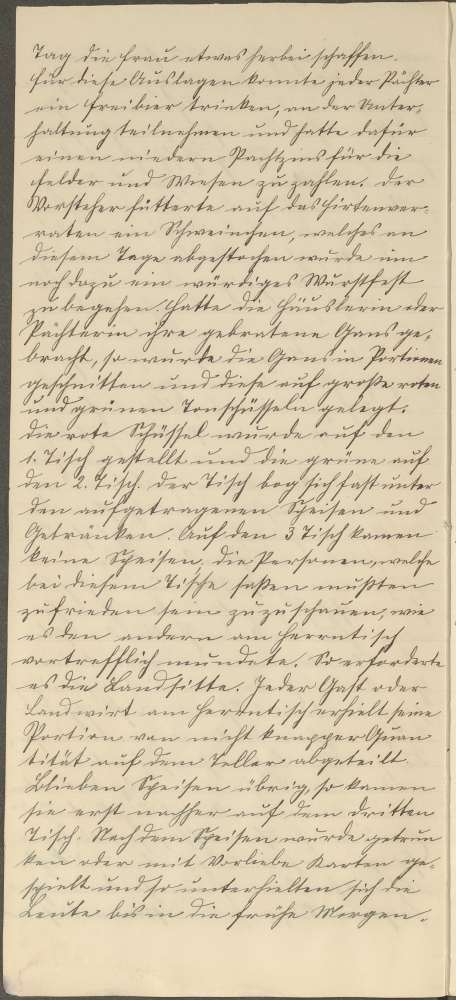 Tag die Frau etwas herbei schaffen.
Für diese Auslagen konnte jeder Pächter
ein Freibier trinken, an der Unter-
haltung teilnehmen und hatte dafür
einen niedern Pachtzins für die
Felder und Wiesen zu zahlen. Der
Vorsteher fütterte auf das Hirtenver-
raten ein Schweinchen, welches an
diesem Tage abgestochen wurde um
noch dazu ein würdiges Wurstfest
zu begehen. Hatte die Häuslerin oder
Pächterin ihre gebratene Gans ge-
bracht, so wurde die Gans in Portionen
geschnitten und diese auf große roten
und grünen Tonschüsseln gelegt.
Die rote Schüssel wurde auf den
1. Tisch gestellt und die grüne auf
den 2. Tisch. Der Tisch bog sich fast unter
den aufgetragenen Speisen und
Getränken. Auf den 3 Tisch kamen
keine Speisen, die Personen, welche
bei diesem Tische saßen mußten
zufrieden sein zuzuschauen, wie
es den andern am Herrntisch
vortrefflich mundete. So erforderte
es die Landsitte. Jeder Gast oder
Landwirt am Herrntisch erhielt seine
Portion von nicht knapper Quan
tität auf dem Teller abgeteilt.
Blieben Speisen übrig, so kamen
sie erst nachher auf dem dritten
Tisch. Nach dem Speisen wurde getrun
ken oder mit Vorliebe Karten ge-
spielt und so unterhielten sich die
Leute bis in die frühe Morgen.